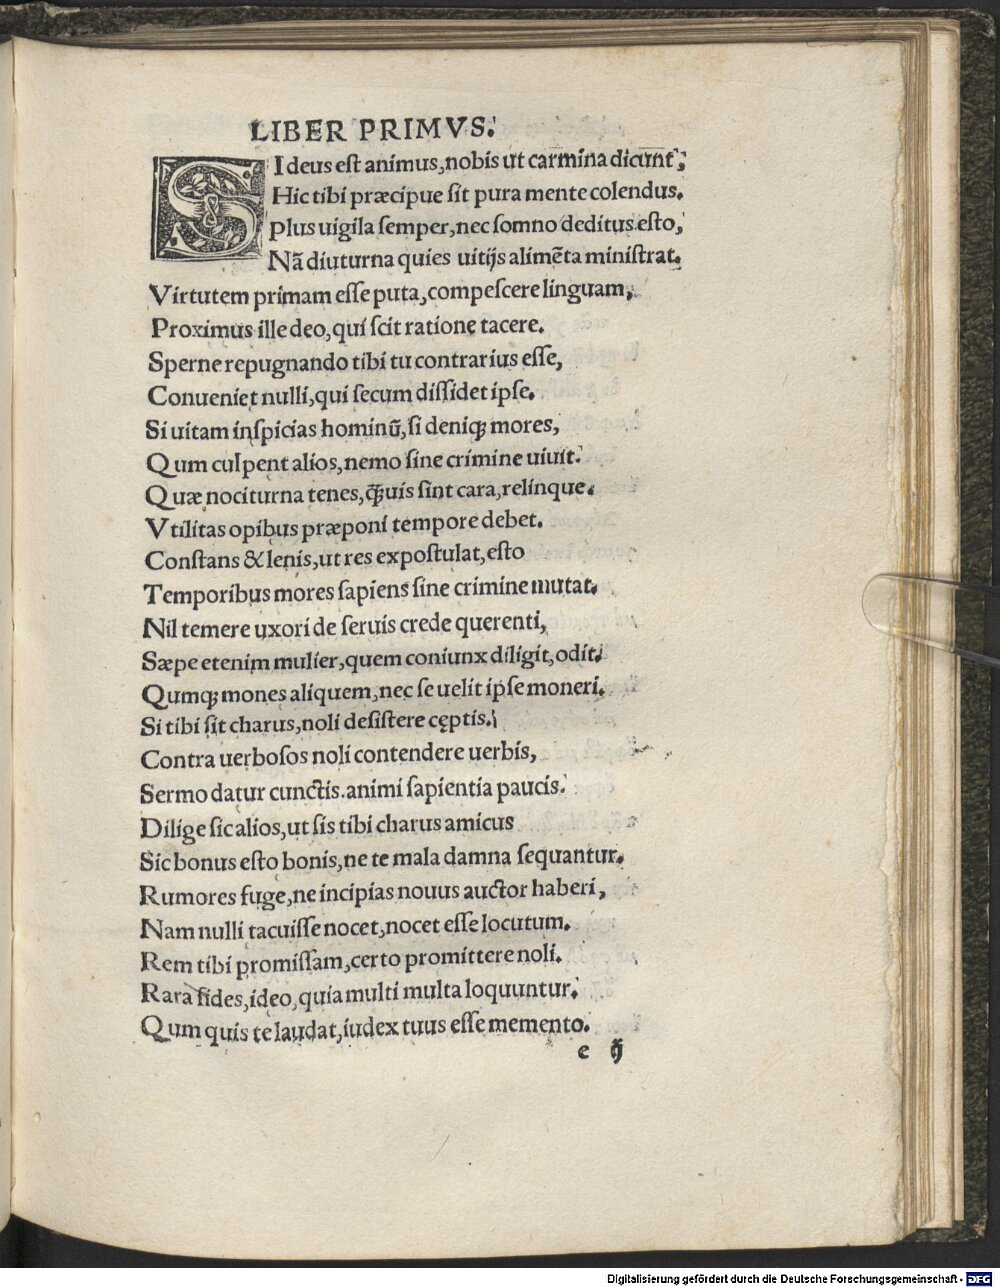 LIBER PRIMVS.
SI deus est animus, nobis ut carmina dicunt,
Hic tibi præcipue sit pura mente colendus.
Plus uigila semper, nec somno deditus esto,
Nã diuturna quies uitijs alimẽta ministrat.
Virtutem primam esse puta, compescere linguam,
Proximus ille deo, qui scit ratione tacere.
Sperne repugnando tibi tu contrarius esse,
Conueniet nulli, qui secum dissidet ipse.
Si uitam inspicias hominũ, si deniqꝫ mores,
Qum culpent alios, nemo sine crimine uiuit.
Quæ nociturna tenes, q̃uis sint cara, relinque.
Vtilitas opibus præponi tempore debet.
Constans & lenis, ut res expostulat, esto
Temporibus mores sapiens sine crimine mutat.
Nil temere uxori de seruis crede querenti,
Sæpe etenim mulier, quem coniunx diligit, odit.
Qumqꝫ mones aliquem, nec se uelit ipse moneri.
Si tibi sit charus, noli desistere cęptis.
Contra uerbosos noli contendere uerbis,
Sermo datur cunctis. animi sapientia paucis.
Dilige sic alios, ut sis tibi charus amicus
Sic bonus esto bonis, ne te mala damna sequantur.
Rumores fuge, ne incipias nouus auctor haberi,
Nam nulli tacuisse nocet, nocet esse locutum.
Rem tibi promissam, certo promittere noli.
Rara fides, ideo, quia multi multa loquuntur.
Qum quis te laudat, iudex tuus esse memento.
e ij
Digitalisierung gefördert durch die Deutsche Forschungsgemeinschaft - DFG